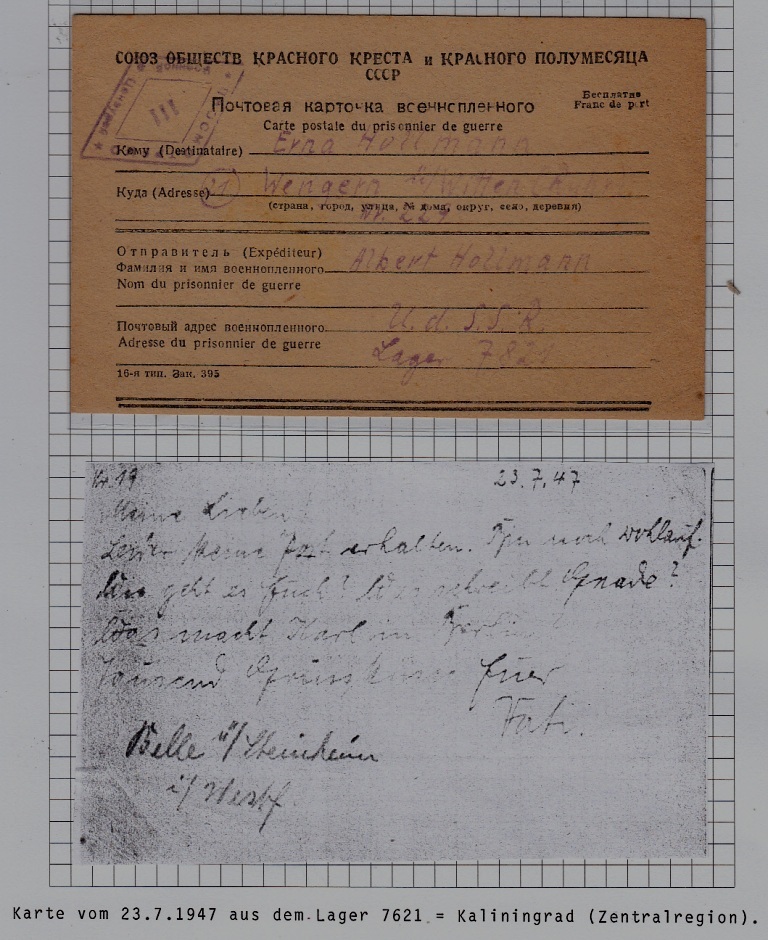 СОЮЗ ОБЩЕСТВ КРАСНОГО КРЕСТА и КРАСНОГО ПОЛУМЕСЯЦА
СССР
Почтовая карточка военнопленного
Бесплатно
Franc de port
Carte postale du prisonnier de guerre
Кому (Destinataire) Erna Hollmann
Куда (Adresse) Wengern ü/Witten
(страна, город, улица, № дома, округ, село, деревня)
Nr. 22
Отправитель (Expéditeur)
Фамилия и имя военнопленного Albert Hollmann
Nom du prisonnier de guerre
Почтовый адрес военнопленного U.d.S.S.R.
Adresse du prisonnier de guerre
Lager
16-я тип. Зак. 395
Nr. 19 23.7.47
Meine Lieben!
Leider keine Post erhalten. Bin noch wohlauf.
Wie geht es Euch? Was schreibt Gnade?
Was macht Karl in Berlin
Tausend Grüsse Küsse Euer
Vati.
Belle ü/Steinheim
i/Westf.
Karte vom 23.7.1947 aus dem Lager 7621 = Kaliningrad (Zentralregion).